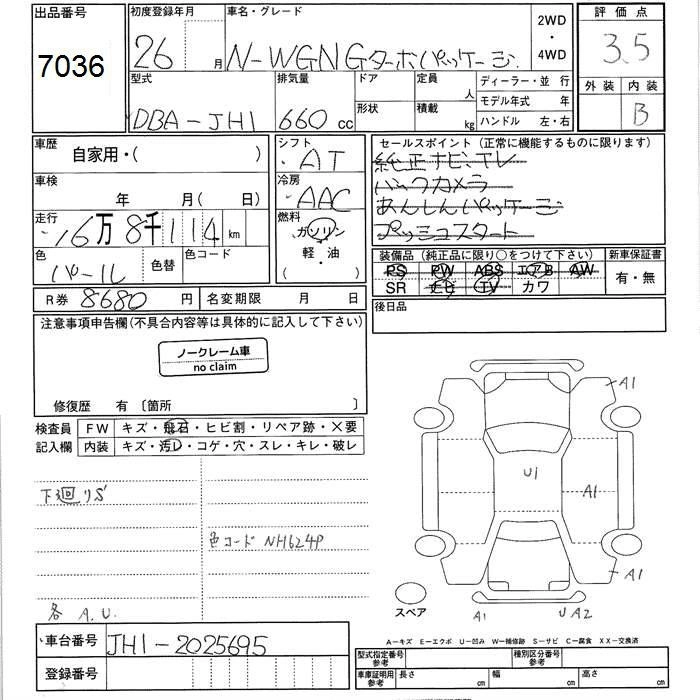 出品番号
7036
初度登録年月
26 月
車名・グレード
N-WGN Gターボパッケージ
2WD
・
4WD
評価点
3.5
外装 内装
B
型式
DBA-JH1
排気量
660 cc
ドア
形状
定員
人
積載
kg
ディーラー・並 行
モデル年式 年
ハンドル 左・右
車歴
自家用・( )
車検
年 月( 日)
走行
16万8千114 km
色
パール
色替
色コード
シフト
AT
冷房
AAC
燃料
ガソリン
軽・油
( )
セールスポイント(正常に機能するものに限ります)
純正ナビ、TV
バックカメラ
あんしんパッケージ
プッシュスタート
装備品(純正品に限り○をつけて下さい)
PS PW ABS エアB AW
SR CD TV カワ
新車保証書
有・無
R券 8680 円
名変期限 月 日
後日品
注意事項申告欄(不具合内容等は具体的に記入して下さい)
ノークレーム車
no claim
修復歴 有 〔箇所 〕
検査員
記入欄
FW キズ・飛石・ヒビ割・リペア跡・×要
内装 キズ・汚レ・コゲ・穴・スレ・キレ・破レ
下廻リS
色コード NH624P
各 A.U.
A1
U1
A1
A1
スペア
A1
U A2
A-キズ E-エクボ U-凹み W-補修跡 S-サビ C-腐食 XX-交換済
車台番号 JH1-2025695
登録番号
型式指定番号
参考
種別区分番号
参考
車庫証明用
参考
長さ cm 幅 cm 高さ cm